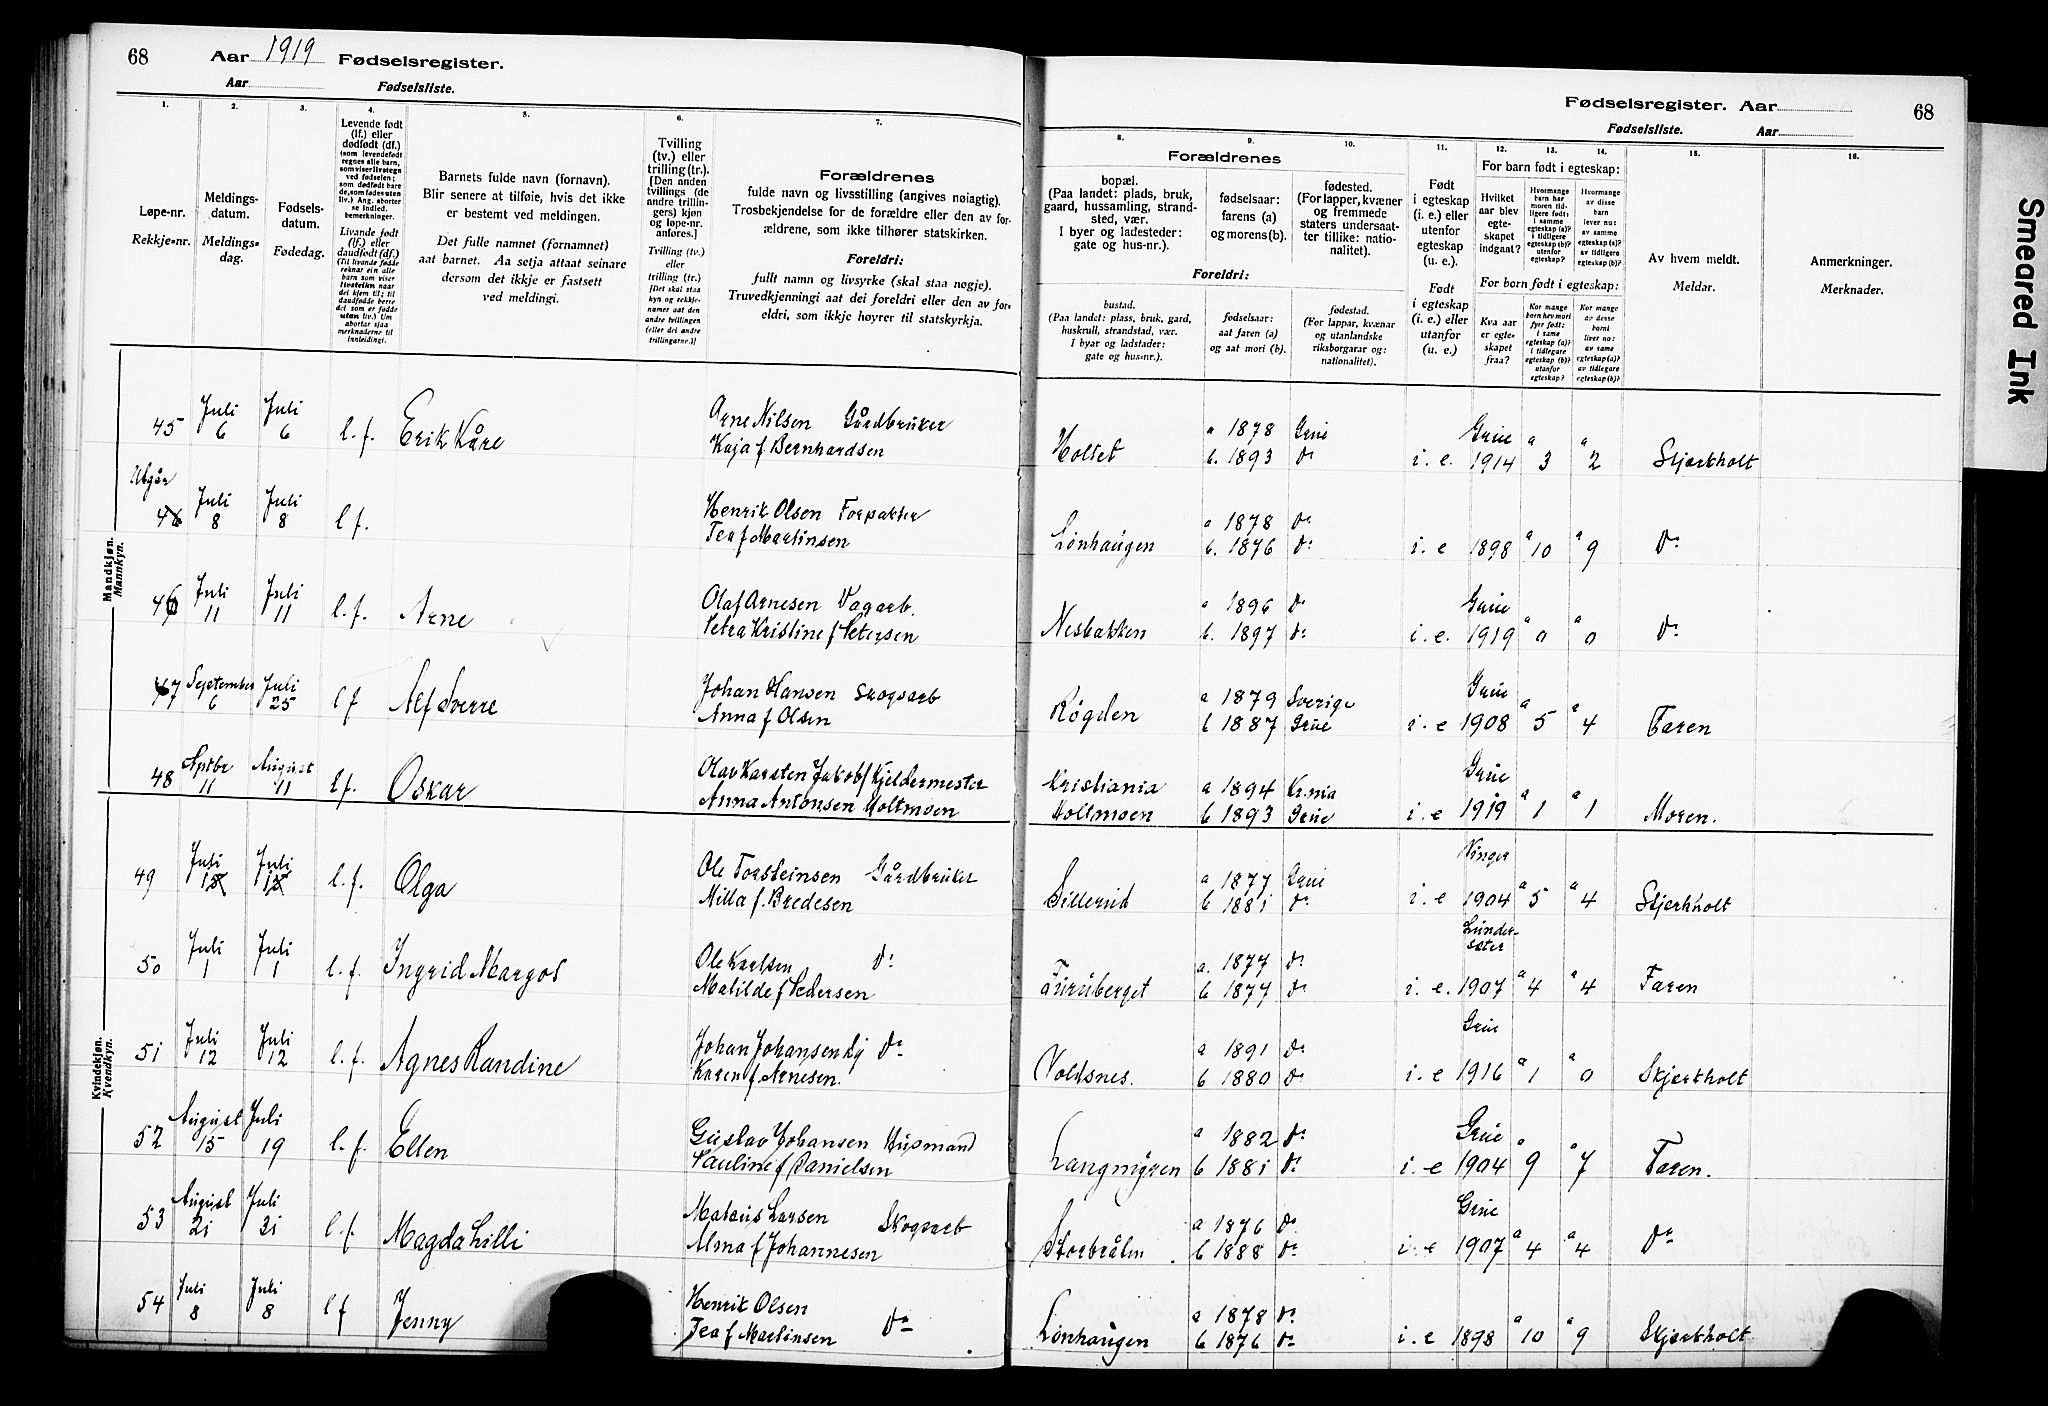 68 Aar 1919 Fødselsregister.
Aar Fødselsliste.
Fødselsregister. Aar 68
Fødselsliste. Aar
Smeared Ink
1.
Løpe-nr.
Rekkje-nr.
2.
Meldings-
datum.
Meldings-
dag.
3.
Fødsels-
datum.
Fødedag.
4.
Levende født
(lf.) eller
dødfødt (df.)
(som levendefødt
regnes alle barn,
som viser livstegn
ved fødselen;
som dødfødt bare
de, som fødes uten
liv.) Ang. aborter
se indled.
bemerkninger.
Livande født
(lf.) eller
daudfødt (df.)
(Til livande fødde
reknar ein alle
barn som viser
livsteikn naar
dei kjem til; til
daudfødde berre
dei som er fødde
utan liv.) Um
abortar sjaa
merknaderne til
innleidingi.
5.
Barnets fulde navn (fornavn).
Blir senere at tilføie, hvis det ikke
er bestemt ved meldingen.
Det fulle namnet (fornamnet)
aat barnet. Aa setja attaat seinare
dersom det ikkje er fastsett
ved meldingi.
6.
Tvilling
(tv.) eller
trilling (tr.).
[Den anden
tvillings (de
andre trillin-
gers) kjøn
og løpe-nr.
anføres.]
Tvilling (tv.)
eller
trilling (tr.)
[Det skal staa
kyn og rekkje-
numer aat den
andre tvillingen
(eller dei andre
trillingarne.)]
7.
Forældrenes
fulde navn og livsstilling (angives nøiagtig).
Trosbekjendelse for de forældre eller den av for-
ældrene, som ikke tilhører statskirken.
Foreldri:
fullt namn og livsyrke (skal staa nøgje).
Truvedkjenningi aat dei foreldri eller den av for-
eldri, som ikkje høyrer til statskyrkja.
Forældrenes
Foreldri:
8.
bopæl.
(Paa landet: plads, bruk,
gaard, hussamling, strand-
sted, vær.
I byer og ladesteder:
gate og hus-nr.).
bustad.
(Paa landet: plass, bruk, gard,
huskrull, strandstad, vær.
I byar og ladstader:
gate og hus-nr.).
9.
fødselsaar:
farens (a)
og morens (b).
fødselsaar:
aat faren (a)
og aat mori (b).
10.
fødested.
(For lapper, kvæner
og fremmede
staters undersaat-
ter tillike: natio-
nalitet).
fødestad.
(For lappar, kvænar
og utanlandske
riksborgarar og:
nationalitet).
11.
Født
i egteskap
(i. e.) eller
utenfor
egteskap
(u. e.).
Født
i egteskap
(i. e.) eller
utanfor
(u. e.)
For barn født i egteskap:
For born født i egteskap:
12.
Hvilket
aar blev
egte-
skapet
indgaat?
Kva aar
er egte-
skapet
fraa?
13.
Hvormange
barn har
moren tid-
ligere født:
i samme
egteskap (a)?
i tidligere
egteskap (b)?
utenfor
egteskap?
Kor mange
born hev mori
fyrr født:
i same
egteskap (a)?
i tidlegare
egteskap (b)?
utanfor
egteskap?
14.
Hvormange
av disse
barn
lever nu:
av samme
egteskap (a)?
av tidligere
egteskap (b)?
Kor mange
av desse
borni
liver no:
av same
egteskap (a)?
av tidlegare
egteskap (b)?
15.
Av hvem meldt.
Meldar.
16.
Anmerkninger.
Merknader.
Mandkjøn.
Mannkyn.
45 Juli 6 Juli 6 l. f. Erik Kåre Arne Nilsen Gårdbruker
Kaja f Bernhardsen
Holtet a 1878 Grue
b. 1893 Do i. e. Grue 1914 a 3 a 2 Skjærholt
Utgår
46 Juli 8 Juli 8 l f. Henrik Olsen Forpakter
Tea f Martinsen
Lønhaugen a 1878 Do
b. 1876 Do i. e 1898 a 10 a 9 Do
46 Juli 11 Juli 11 l. f. Arne Olaf Arnesen Dagarb.
Petra Kristine f Petersen
Nesbakken a 1896 Do
b. 1897 Do i. e. Grue 1919 a 0 a 0 Do
47 September 6 Juli 25 l f Alf Sverre Johan Hansen Skogsarb
Anna f Olsen
Røgden a 1879 Sverige
b 1887 Grue i. e Grue 1908 a 5 a 4 Faren
48 Sptbr 11 August 11 l f. Oskar Olav Karsten Jakobs Kjeldermester
Anna Antonsen Holtmoen
Kristiania a 1894 Kr.nia
Holtmoen b 1893 Grue i. e Grue 1919 a 1 a 1 Moren.
Kvindekjøn.
Kvendkyn.
49 Juli 15 Juli 15 l. f. Olga Ole Torsteinsen Gårdbruker
Milla f. Bredesen
Sillerud a 1877 Grue
b 1881 Do i. e Vinger 1904 a 5 a 4 Skjerkholt
50 Juli 1 Juli 1 l. f. Ingrid Margot Ole Karlsen Do
Matilde f Pedersen
Furuberget a. 1877 Do
b 1877 Do i. e. Lunder-
sæter 1907 a 4 a 4 Faren
51 Juli 12 Juli 12 l. f. Agnes Randine Johan Johansen Ly Do
Karen f. Arnesen.
Voldsnes. a 1891 Do
b 1880 Do i. e Grue 1916 a 1 a 0 Skjærkholt
52 August 15 Juli 19 l. f. Ellen Gustav Johansen Husmand
Pauline f Danielsen
Langmyren a 1882 Do
b 1881 Do i. e Grue 1904 a 9 a 7 Faren.
53 August 21 Juli 31 l. f. Magda Lilli Mateus Larsen Skogsarb
Alma f Johannesen
Storbråten a 1876 Do
b 1888 Do i. e Grue 1907 a 4 a 4 Do
54 Juli 8 Juli 8 l f Jenny Henrik Olsen Do
Tea f Martinsen
Lønhaugen a 1878 Do
b 1876 Do i. e 1898 a 10 a 9 Skjærkholt